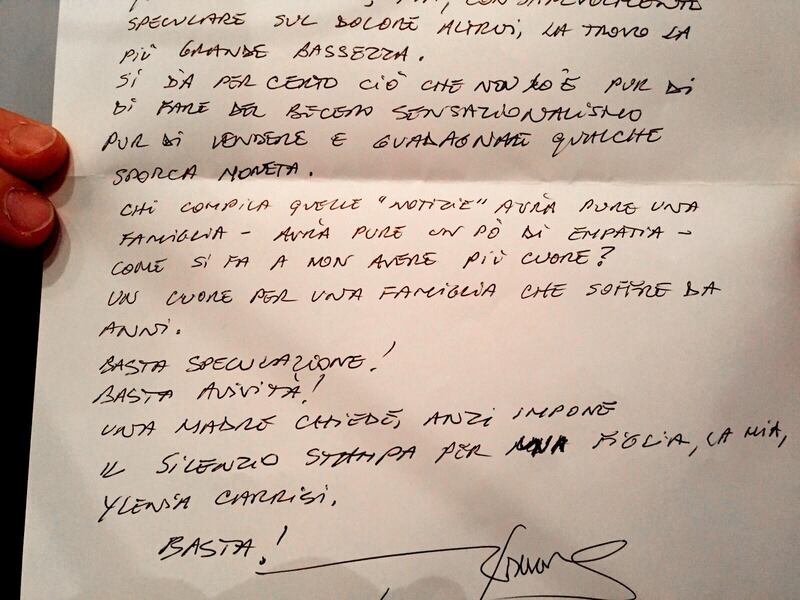 SPECULARE SUL DOLORE ALTRUI, LA TROVO LA
PIÙ GRANDE BASSEZZA.
SI DÀ PER CERTO CIÒ CHE NON LO È PUR DI
DI FARE DEL BECERO SENSAZIONALISMO
PUR DI VENDERE E GUADAGNARE QUALCHE
SPORCA MONETA.
CHI COMPILA QUELLE "NOTIZIE" AVRÀ PURE UNA
FAMIGLIA - AVRÀ PURE UN PÒ DI EMPATIA -
COME SI FA A NON AVERE PIÙ CUORE?
UN CUORE PER UNA FAMIGLIA CHE SOFFRE DA
ANNI.
BASTA SPECULAZIONE!
BASTA AVIDITÀ!
UNA MADRE CHIEDE, ANZI IMPONE
IL SILENZIO STAMPA PER UNA FIGLIA, LA MIA,
YLENIA CARRISI.
BASTA!